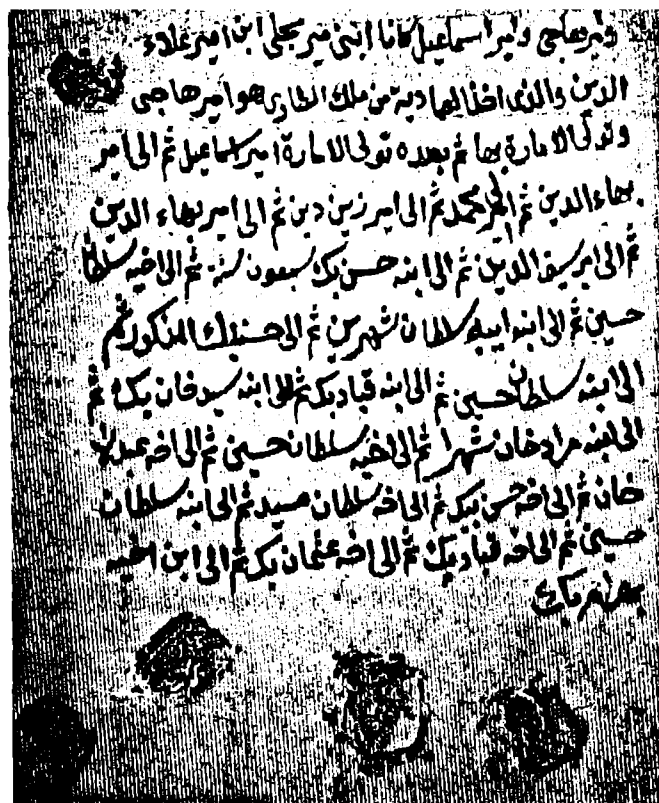 وميرهاجي وامير اسماعيل كانا ابني مير مجلي ابن امير علاء
الدين والذي اخذ العمادية من ملك الطاهر هو امير هاجي
وتولى الامارة بها ثم بعده تولى الامارة امير اسماعيل ثم الى امير
بهاء الدين ثم الى امير محمد ثم الى امير زين دين ثم الى امير بهاء الدين
ثم الى امير سيف الدين ثم الى ابنه حسن بك سبعون سنة ثم الى اخيه سلطان
حسين ثم الى ابنه سلطان ثم الى المذكور ثم
الى ابنه سلطان حسين ثم الى ابنه قباد بك ثم الى ابنه سيد خان بك ثم
الى ابنه مراد خان ثم الى اخيه سلطان حسين ثم الى اخه
خان ثم الى اخه حسن بيك ثم الى اخه سلطان ثم الى ابنه سلطان
حسين ثم الى اخه قباد بيك ثم الى اخه عثمان بك ثم الى ابن اخيه
بهرام بك